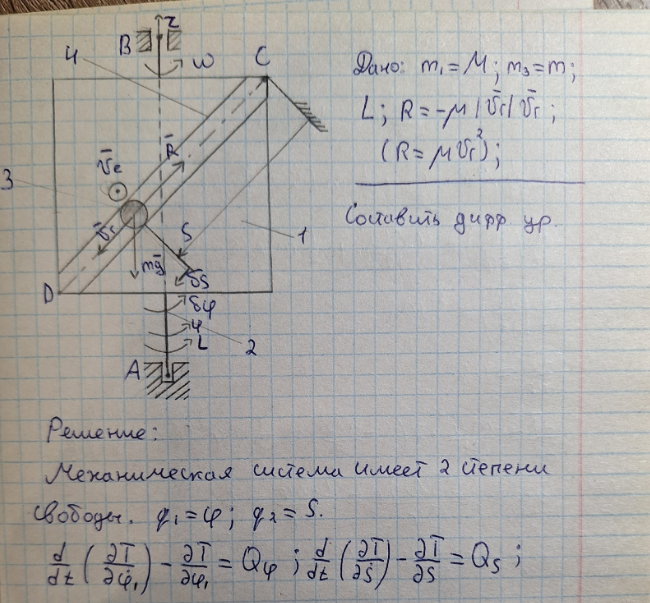 z
B
ω
C
4
R̄
V̄e
3
V̄r
S
1
mḡ
δS
D
δφ
φ
L
2
A
Дано: m₁ = M; m₃ = m;
L; R̄ = -μ|V̄r|V̄r;
(R = μVr²);
Составить дифф ур.
Решение:
Механическая система имеет 2 степени
свободы. q₁ = φ; q₂ = S.
d/dt (∂T/∂φ₁) - ∂T/∂φ₁ = Qφ; d/dt (∂T/∂Ṡ) - ∂T/∂S = Qs;